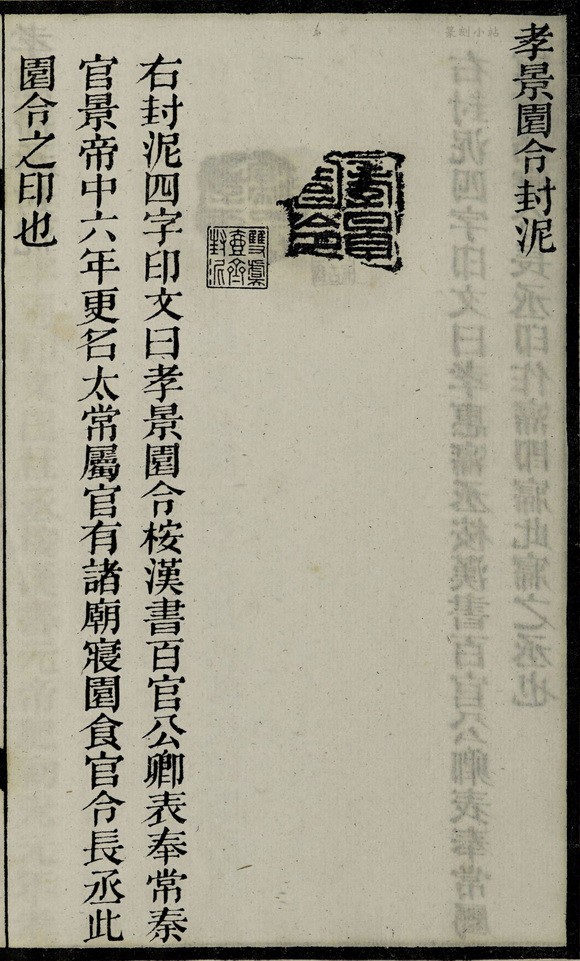 孝景園令封泥
孝景園令
雙虞壺齊封泥
右封泥四字印文曰孝景園令桉漢書百官公卿表奉常秦
官景帝中六年更名太常屬官有諸廟寢園食官令長丞此
園令之印也
篆刻小站